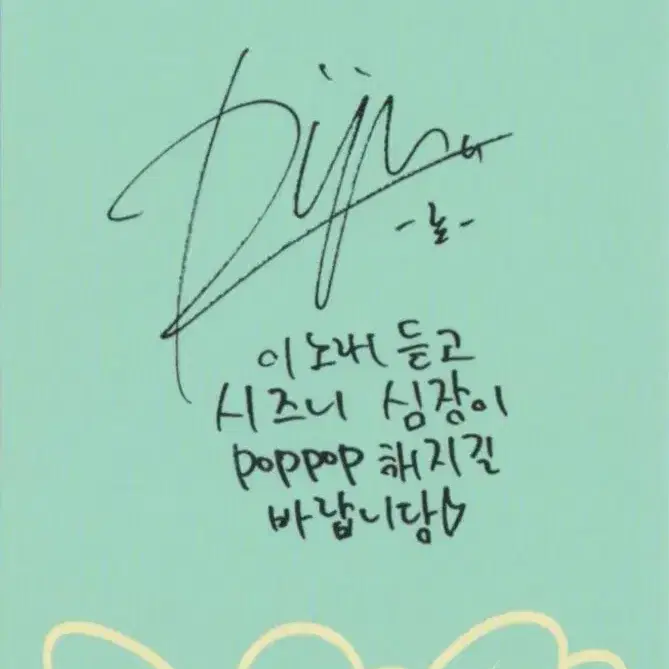 Riku
-놀-
이 노래 듣고
시즈니 심장이
poppop 해지길
바랍니당